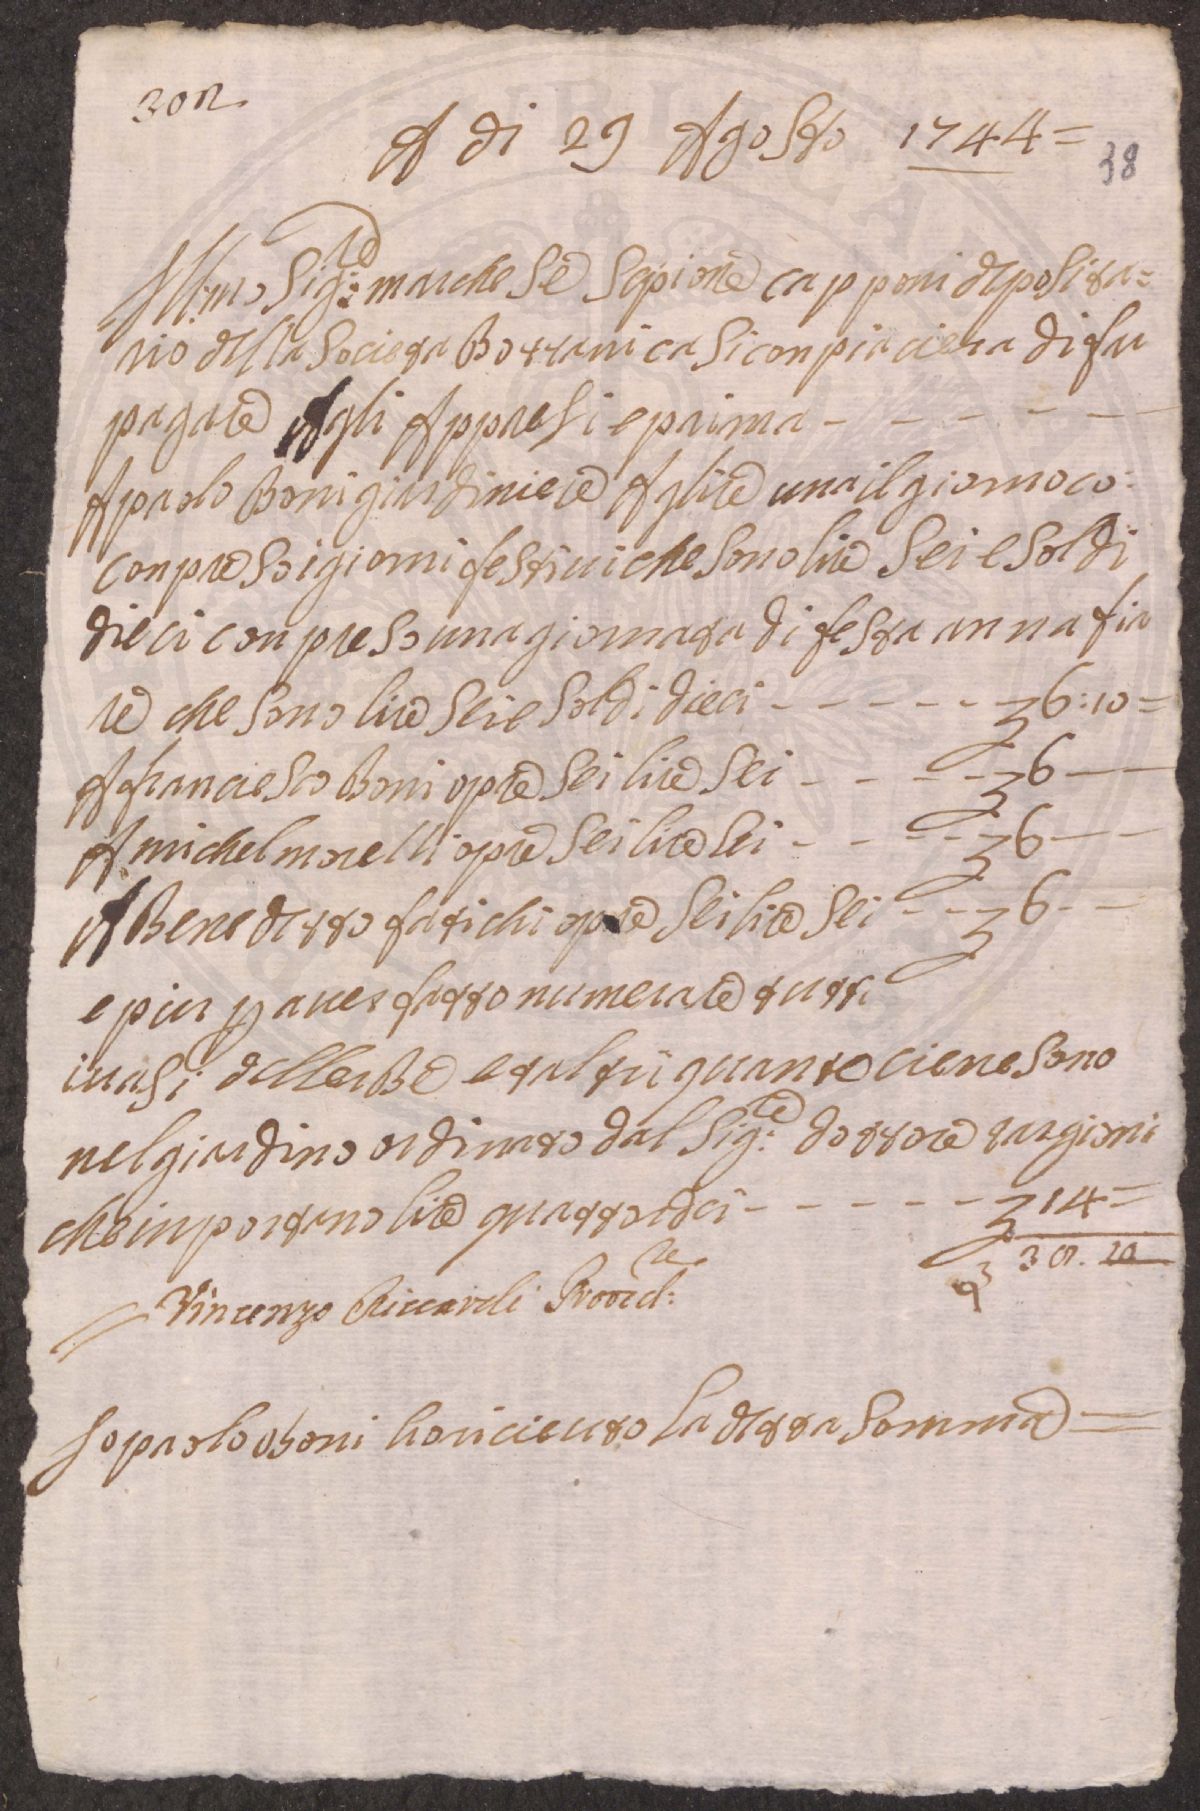 302
A di 29 Agosto 1744=
38
Ill:mo Sig:re marchese Sepione capponi deposita=
rio della Societa Bottanica si conpiaciera di far
pagare Agli Appresi e prima - - - - - -
A paolo Boni giardiniere A lire una il giorno co:
conpreso i giorni festivi che sono lire Sei e Soldi
dieci conpreso una giornata di festa annafia
re che sono lire Sei e Soldi dieci - - - - - - 6:10=
A franciesco Boni opre Sei lire Sei - - - - 6 —
A michel morelli opre Sei lire Sei - - - - 6 —
A Benedetto fatichi opre Sei lire Sei - - - 6 - -
e piu p aver fatto numerare tutti
i vasi dellerbe e talfri quante ciene sono
nel giardino ordinato dal Sig:re dottore targioni
che inportano lire quattordci - - - - - 14=
38. 10
Vincenzo Riccardi Proved:re
Io paolo boni ho riceuto la detta Somma =